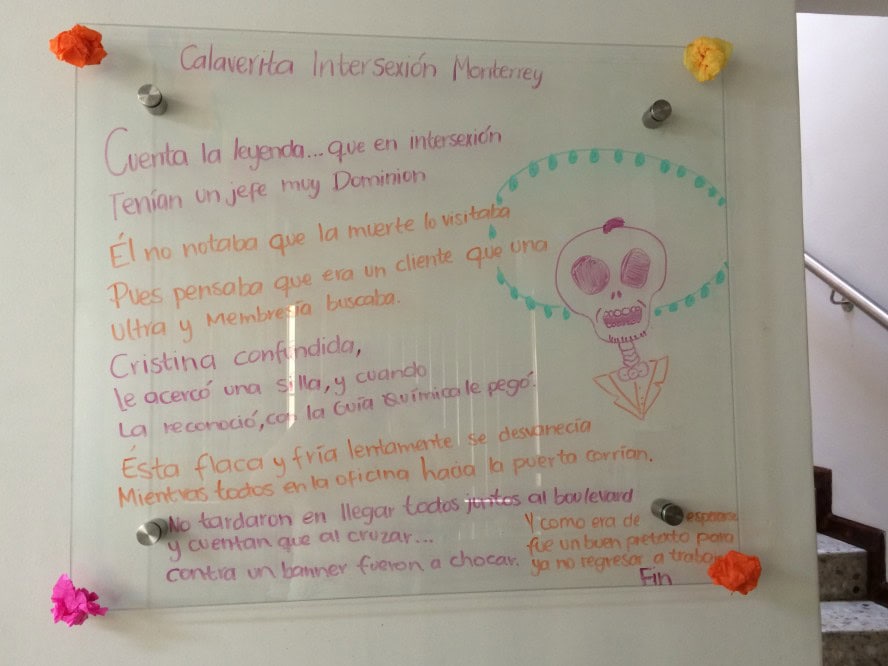 Calaverita Intersexión Monterrey
Cuenta la leyenda... que en intersexión
Tenían un jefe muy Dominion
Él no notaba que la muerte lo visitaba
Pues pensaba que era un cliente que una
Ultra y Membresía buscaba.
Cristina confundida,
le acercó una silla, y cuando
La reconoció, con la Guía Química le pegó.
Ésta flaca y fría lentamente se desvanecía
Mientras todos en la oficina hacia la puerta corrían.
No tardaron en llegar todos juntos al boulevard
y cuentan que al cruzar...
contra un banner fueron a chocar.
Y como era de esperarse
fue un buen pretexto para
ya no regresar a trabajar
Fin